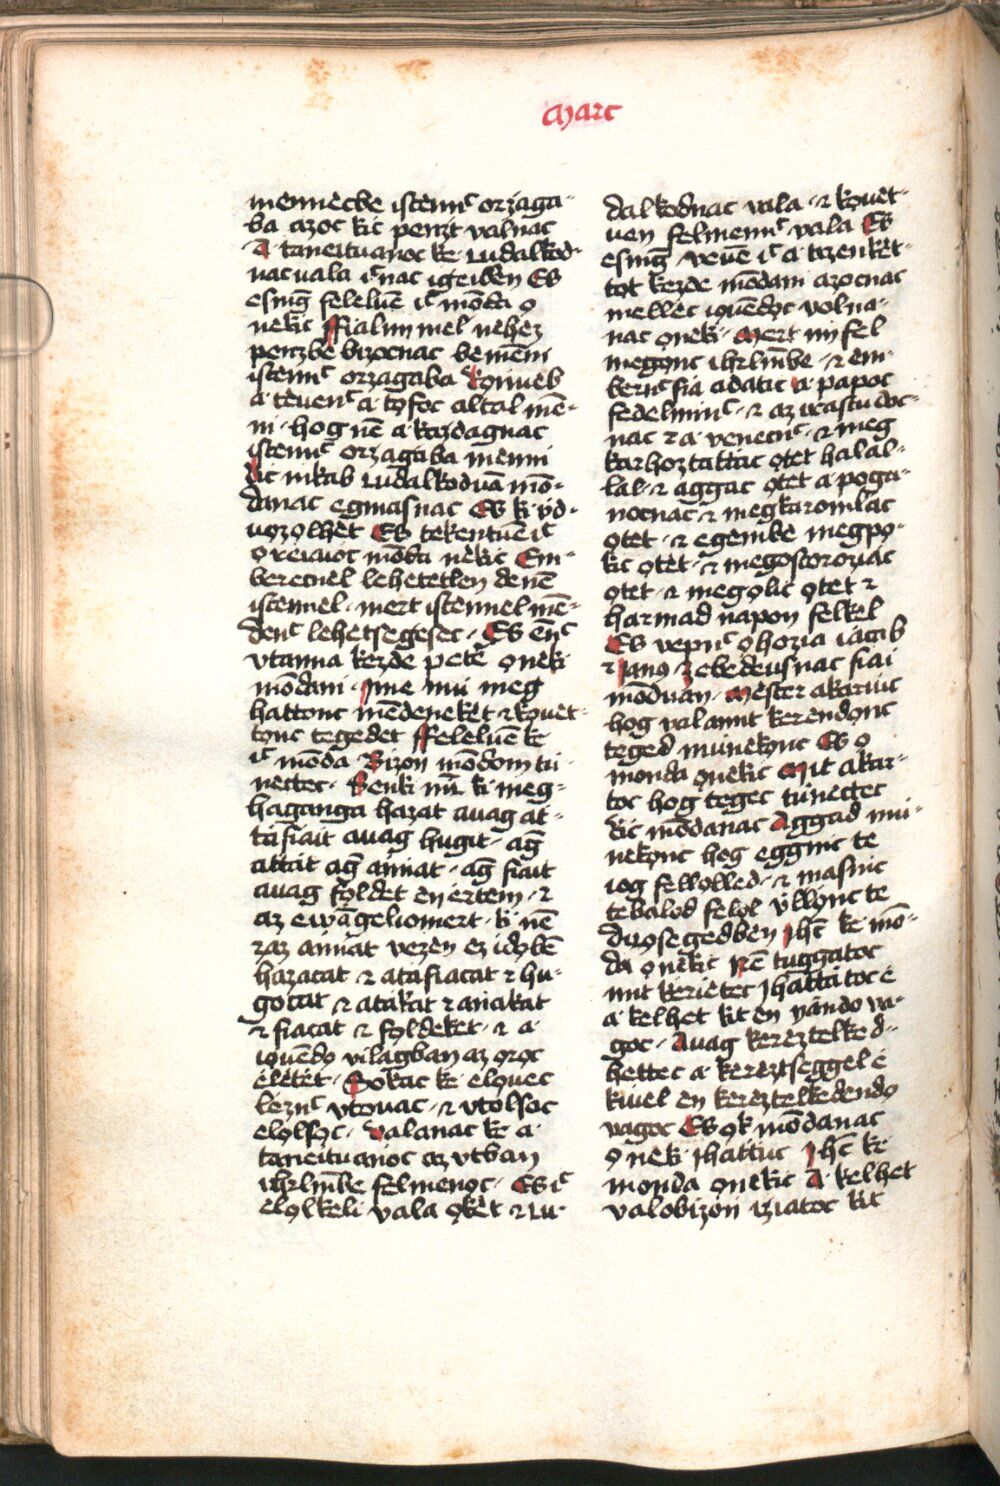 Marc
mennėcbe istenn͑ orzaga-
ba azoc kic penzt valnac
A taneituanoc ke· ċudalkod-
nac vala i͑nac igeiden Es
esmg̃ feleluē i͑ mōda o̗
nekic Fialim mel nehez
penzbė bizocnac bemēni
istenn͑ orzagaba Ko̗nneb
a tėuen͑ a to̗foc altal mē-
ni· hog nē a kazdagnac
istenn͑ orzagaba menni
kic inkab ċudalkoduā mō-
danac egmasnac Es ki v̇d-
uozo̗lhėt Es tekentuē i͑
o̗reiaioc mōda nėkic Em-
berecnel lehetetlen de nē
istennel· mert istennel mē-
den͑ lehetsegesec· Es ėn͑
vtanna kezde petė o̗neki
mōdani· Ime mu̇ meg
hattonc mēdenekėt ꝛ ko̗uėt-
to̗nc tegedet Feleluē ke
i͑ mōda Bizon mōdom tu̇-
nectec· Senki nīn ki meg-
haganga hazat auag at-
tafiait auag hugit· ag̃
attat ag̃ annat· ag̃ fiait
auag fo̗ldet en ėrtem· ꝛ
az ewāgeliomert· ki nē
zaz annat vezen ez ido̗bė̄
hazacat ꝛ atafiacat ꝛ hu-
gocat ꝛ atakat ꝛ aniakat
ꝛ fiacat ꝛ fo̗ldeket· ꝛ a
io̗uėdo̗ vilagban az o̗ro̗c
ėlėtėt· Sokac ke elo̗uec
lėzn͑ vtouac· ꝛ vtolsoc
elo̗lso̗c· Valanac ke a·
taneituanoc az vtban
ihrlmbe felmeno̗c· Es i͑
elo̗lkeli vala o̗kėt ꝛ ċu-
dalkodnac vala· ꝛ ko̗uėt-
uen felmenn͑ vala Es
esmg̃ veuē i͑ a tizenkėt-
tot kezde mōdani azocnac
mellec io̗uendo̗c volna-
nac o̗neki· Mert imfel
megonc ihrlmbe· ꝛ em-
bern͑ fia adatic a papoc
fedelmin͑· ꝛ az irastudoc-
nac ꝛ a venecn͑· ꝛ meg
karhoztattac o̗tet halal-
lal· ꝛ aggac o̗tet a poga-
nocnac ꝛ megkaromlac
o̗tet· ꝛ egembe megpo̗-
kic o̗tėt· ꝛ megostorozzac
o̗tet· ꝛ mego̗lic o̗tet ꝛ
harmad napon felkel
Es vepn͑ o̗hozia iacab
ꝛ Ianus Zebedeusnac fiai
mōduan· Mester akariuc
hog valamit kerendo̗nc
teged mu̇neko̗nc Es o̗
monda o̗nėkic Mit akar-
toc hog tegec tu̇nectec
Kic mōdanac Aggad mu̇-
neko̗nc hog eggic te
iog fello̗lled· ꝛ masic
tebalod felo̗l v̇llo̗nc te
dico̗segedben Ihc̄ ke mō-
da o̗nėkic Nē tuggatoc
mit kerietec Ihattatoc ė
a kelhet kit en yando va-
goc· Auag kereztelked-
hettec a kereztseggel ė
kiuel en kereztelkedendo̗
vagoc Es o̗k mōdanac
o̗nek Ihattuc Ihc̄ ke
monda o̗nekic A kelhet
valobizon iziatoc kit